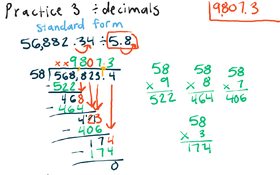 Practice 3 ÷ decimals
9,807.3
standard form
56,882.34 ÷ 5.8
xx9807.3
58 568,823.4
- 522
468
- 464
423
- 406
174
- 174
0
58 58 58
x 9 x 8 x 7
522 464 406
58
x 3
174